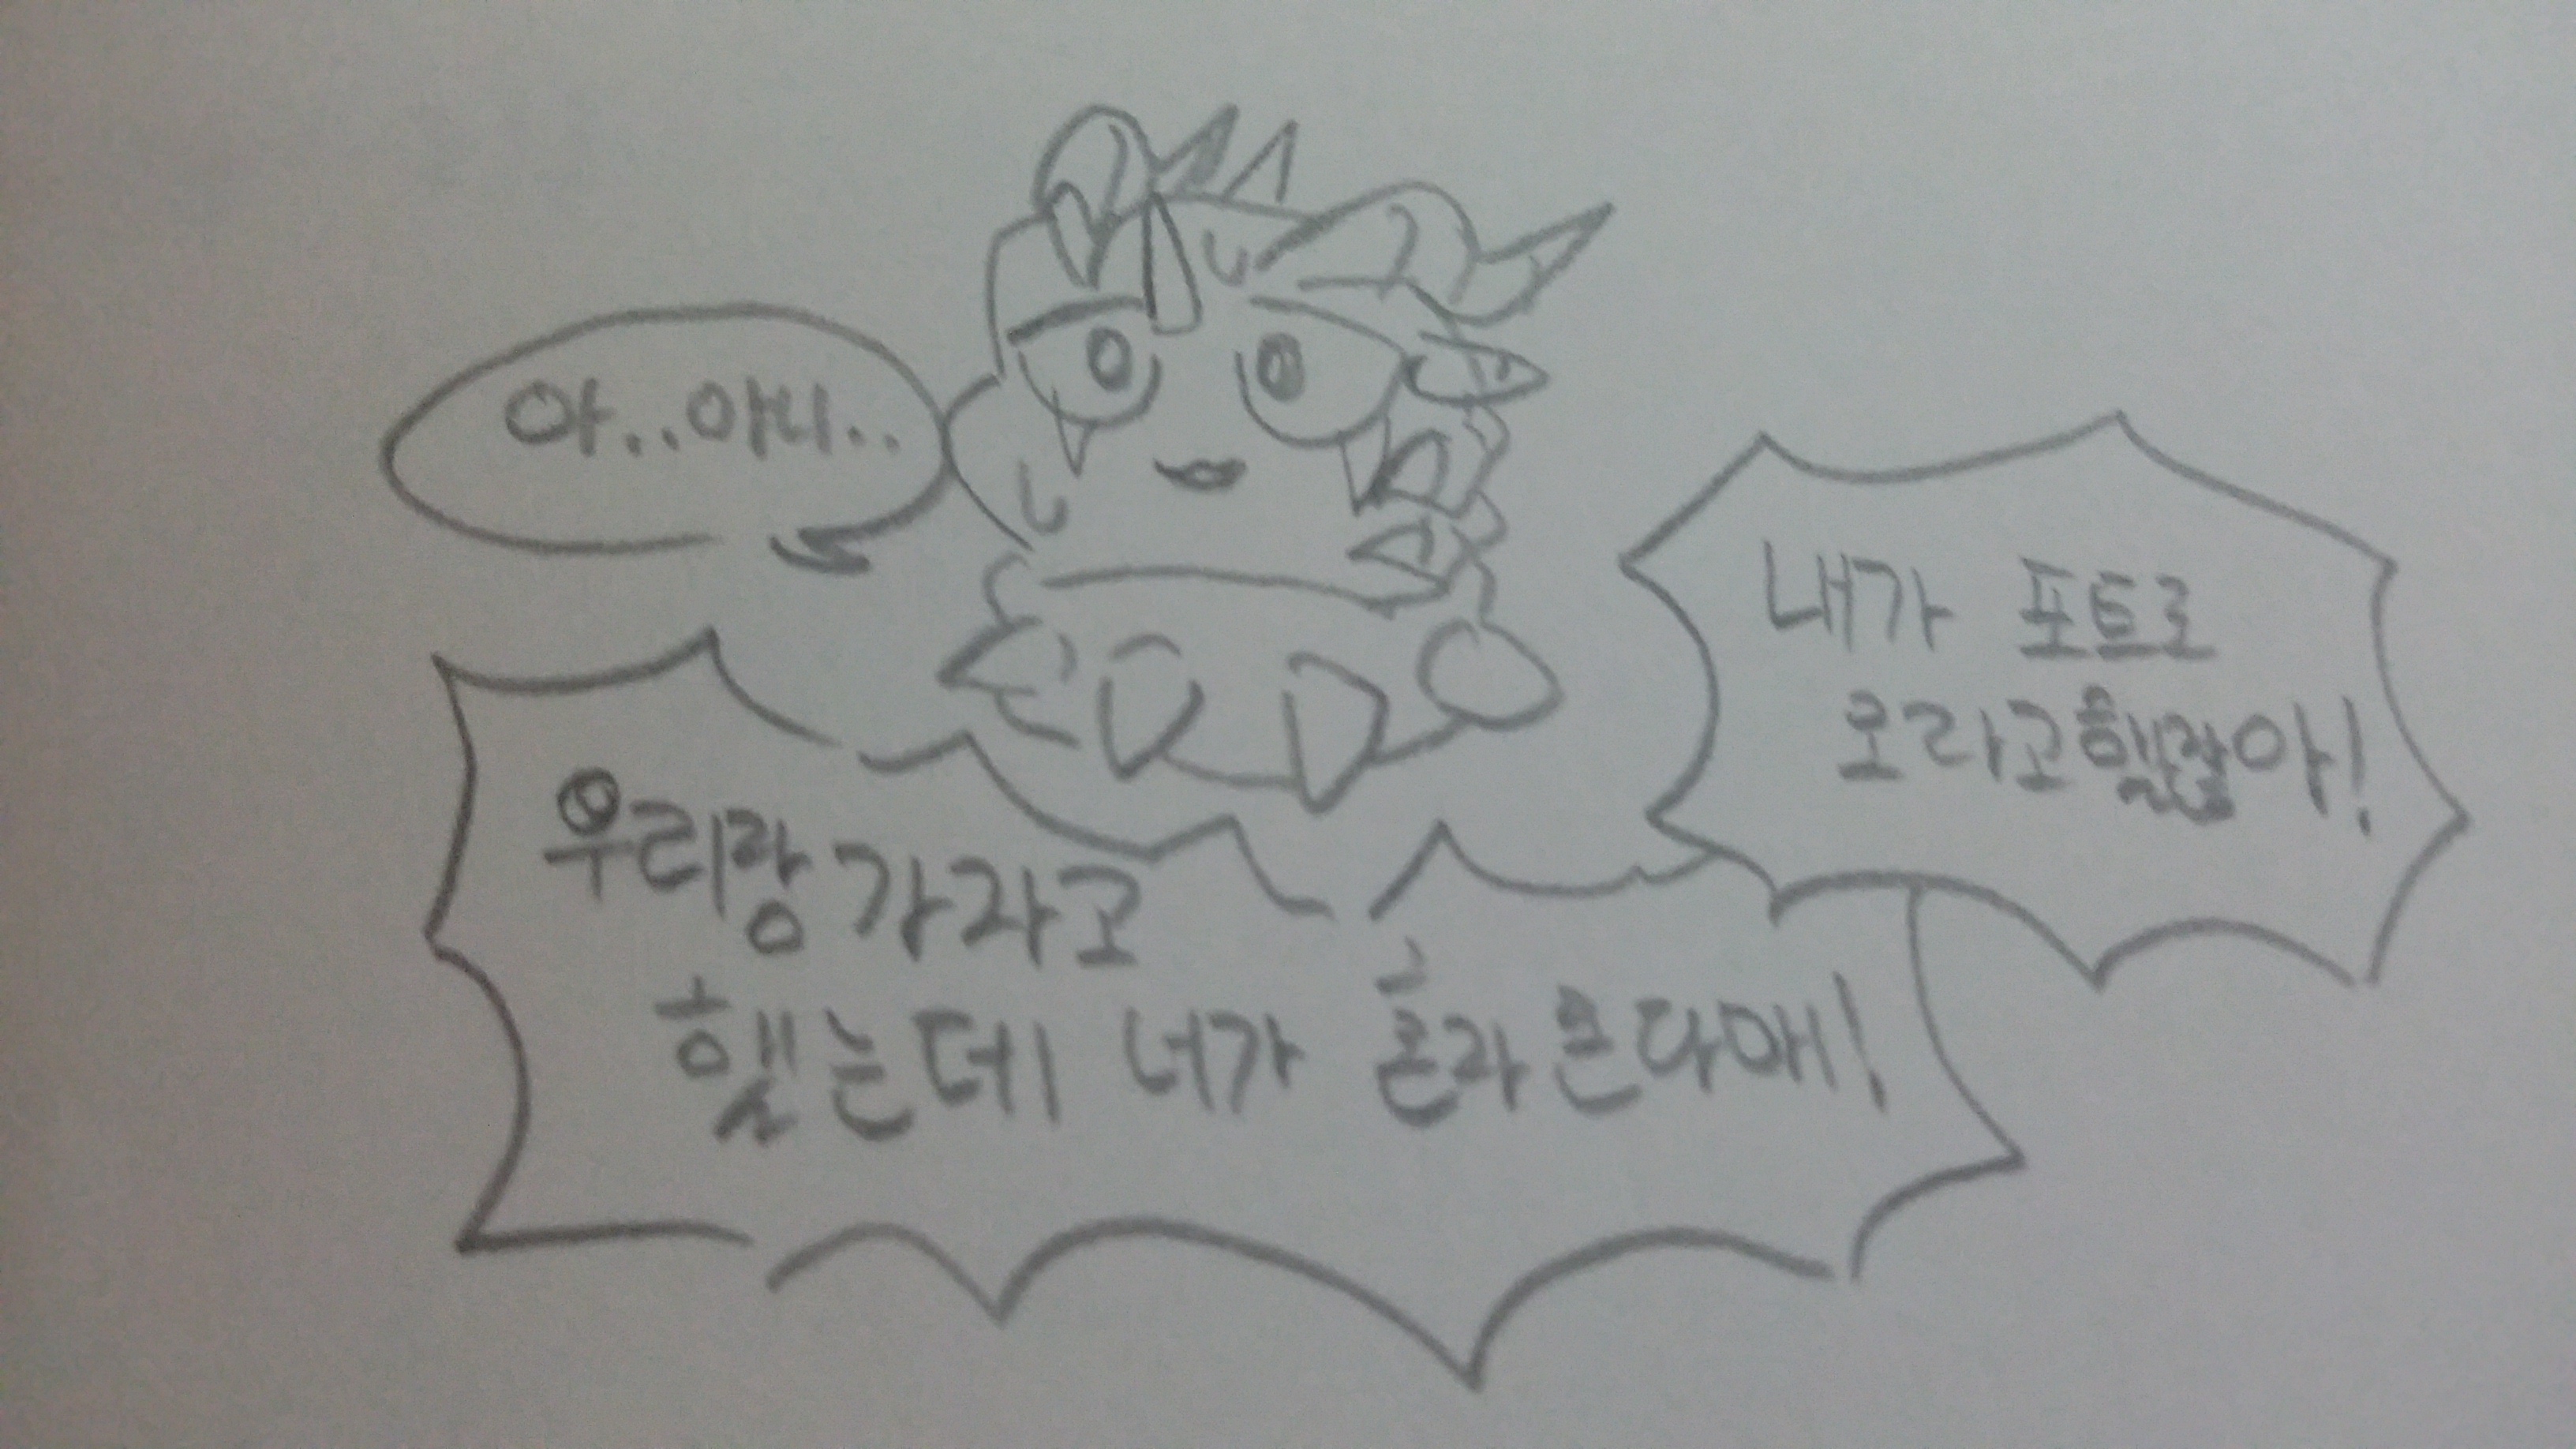 아..아니..
내가 포트로
오라고했잖아!
우리랑 가라고
했는데 너가 혼자 온다매!